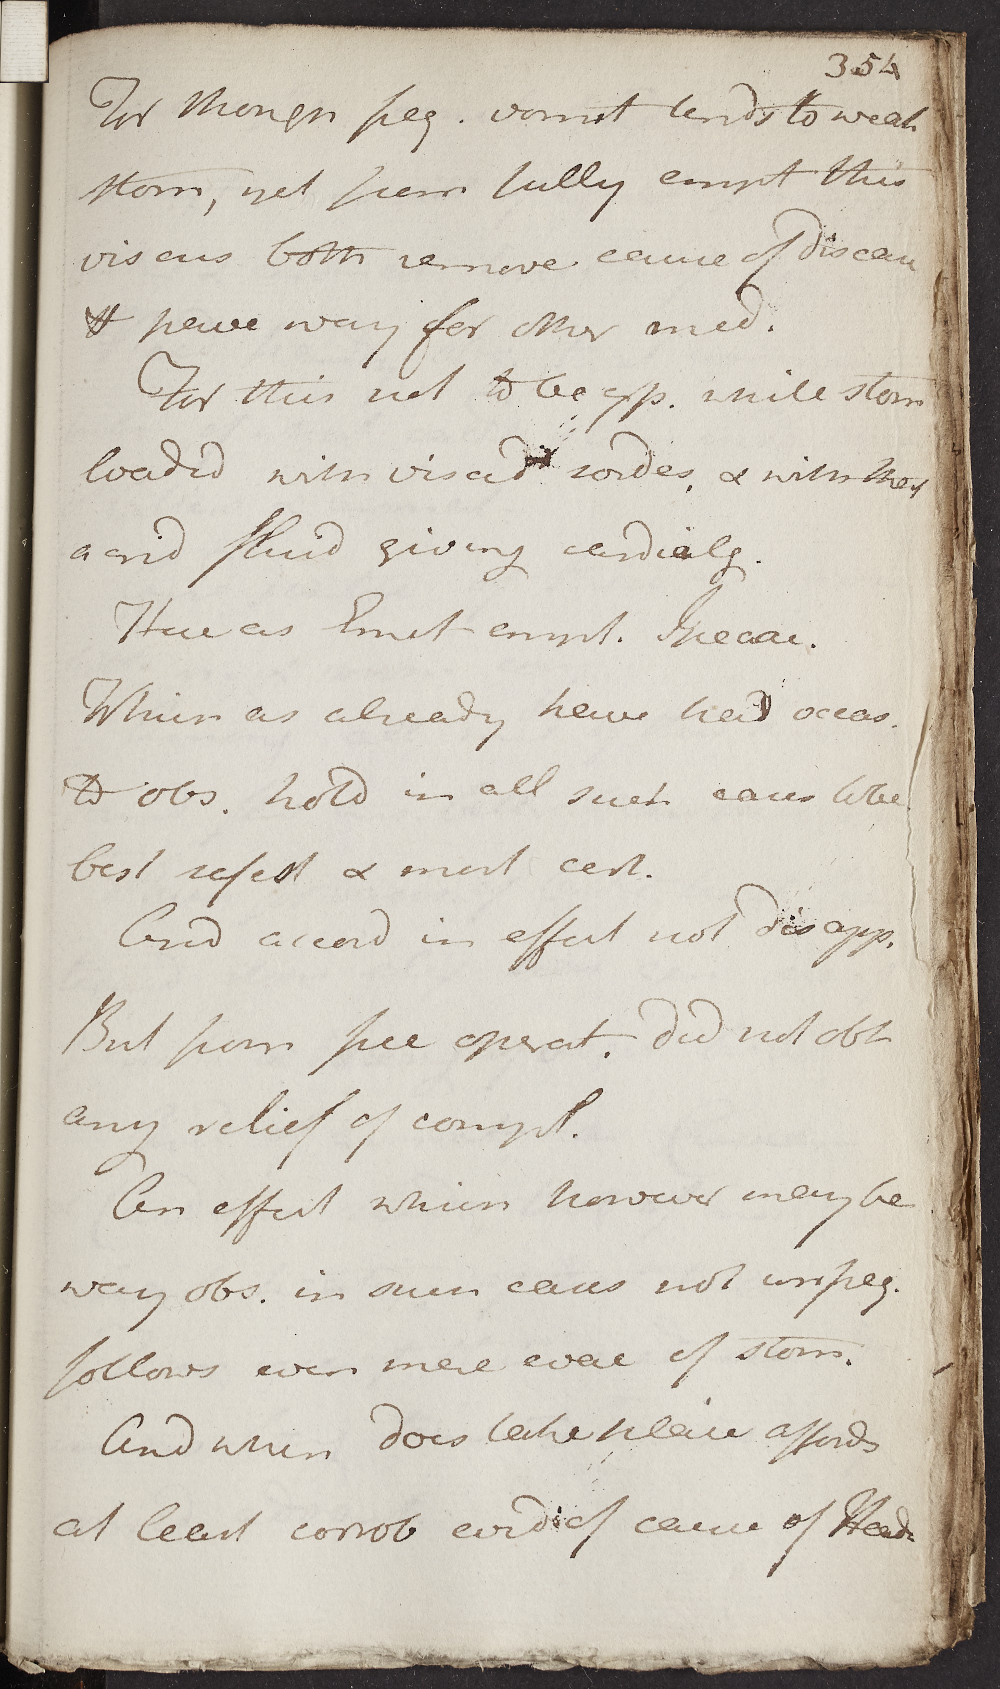 354
For though freq. vomit tends to weak
stom, yet from fully empt this
viscus both remove cause of disease
& pave way for other med.
For this not to be exp. while stom
loaded with viscid sordes, & with
acrid fluid giving cardialg.
Here as Emet empl. Ipecac.
Which as already have had occas.
to obs. hold in all such cases to be
best safest & most cert.
And accord in effect not disapp.
But from free operat. did not obt
any relief of compl.
An effect which however may be
way obs. in such cases not unfreq.
follows even mere evac of stom.
And when does take place affords
at least corrob evid of cause of Head